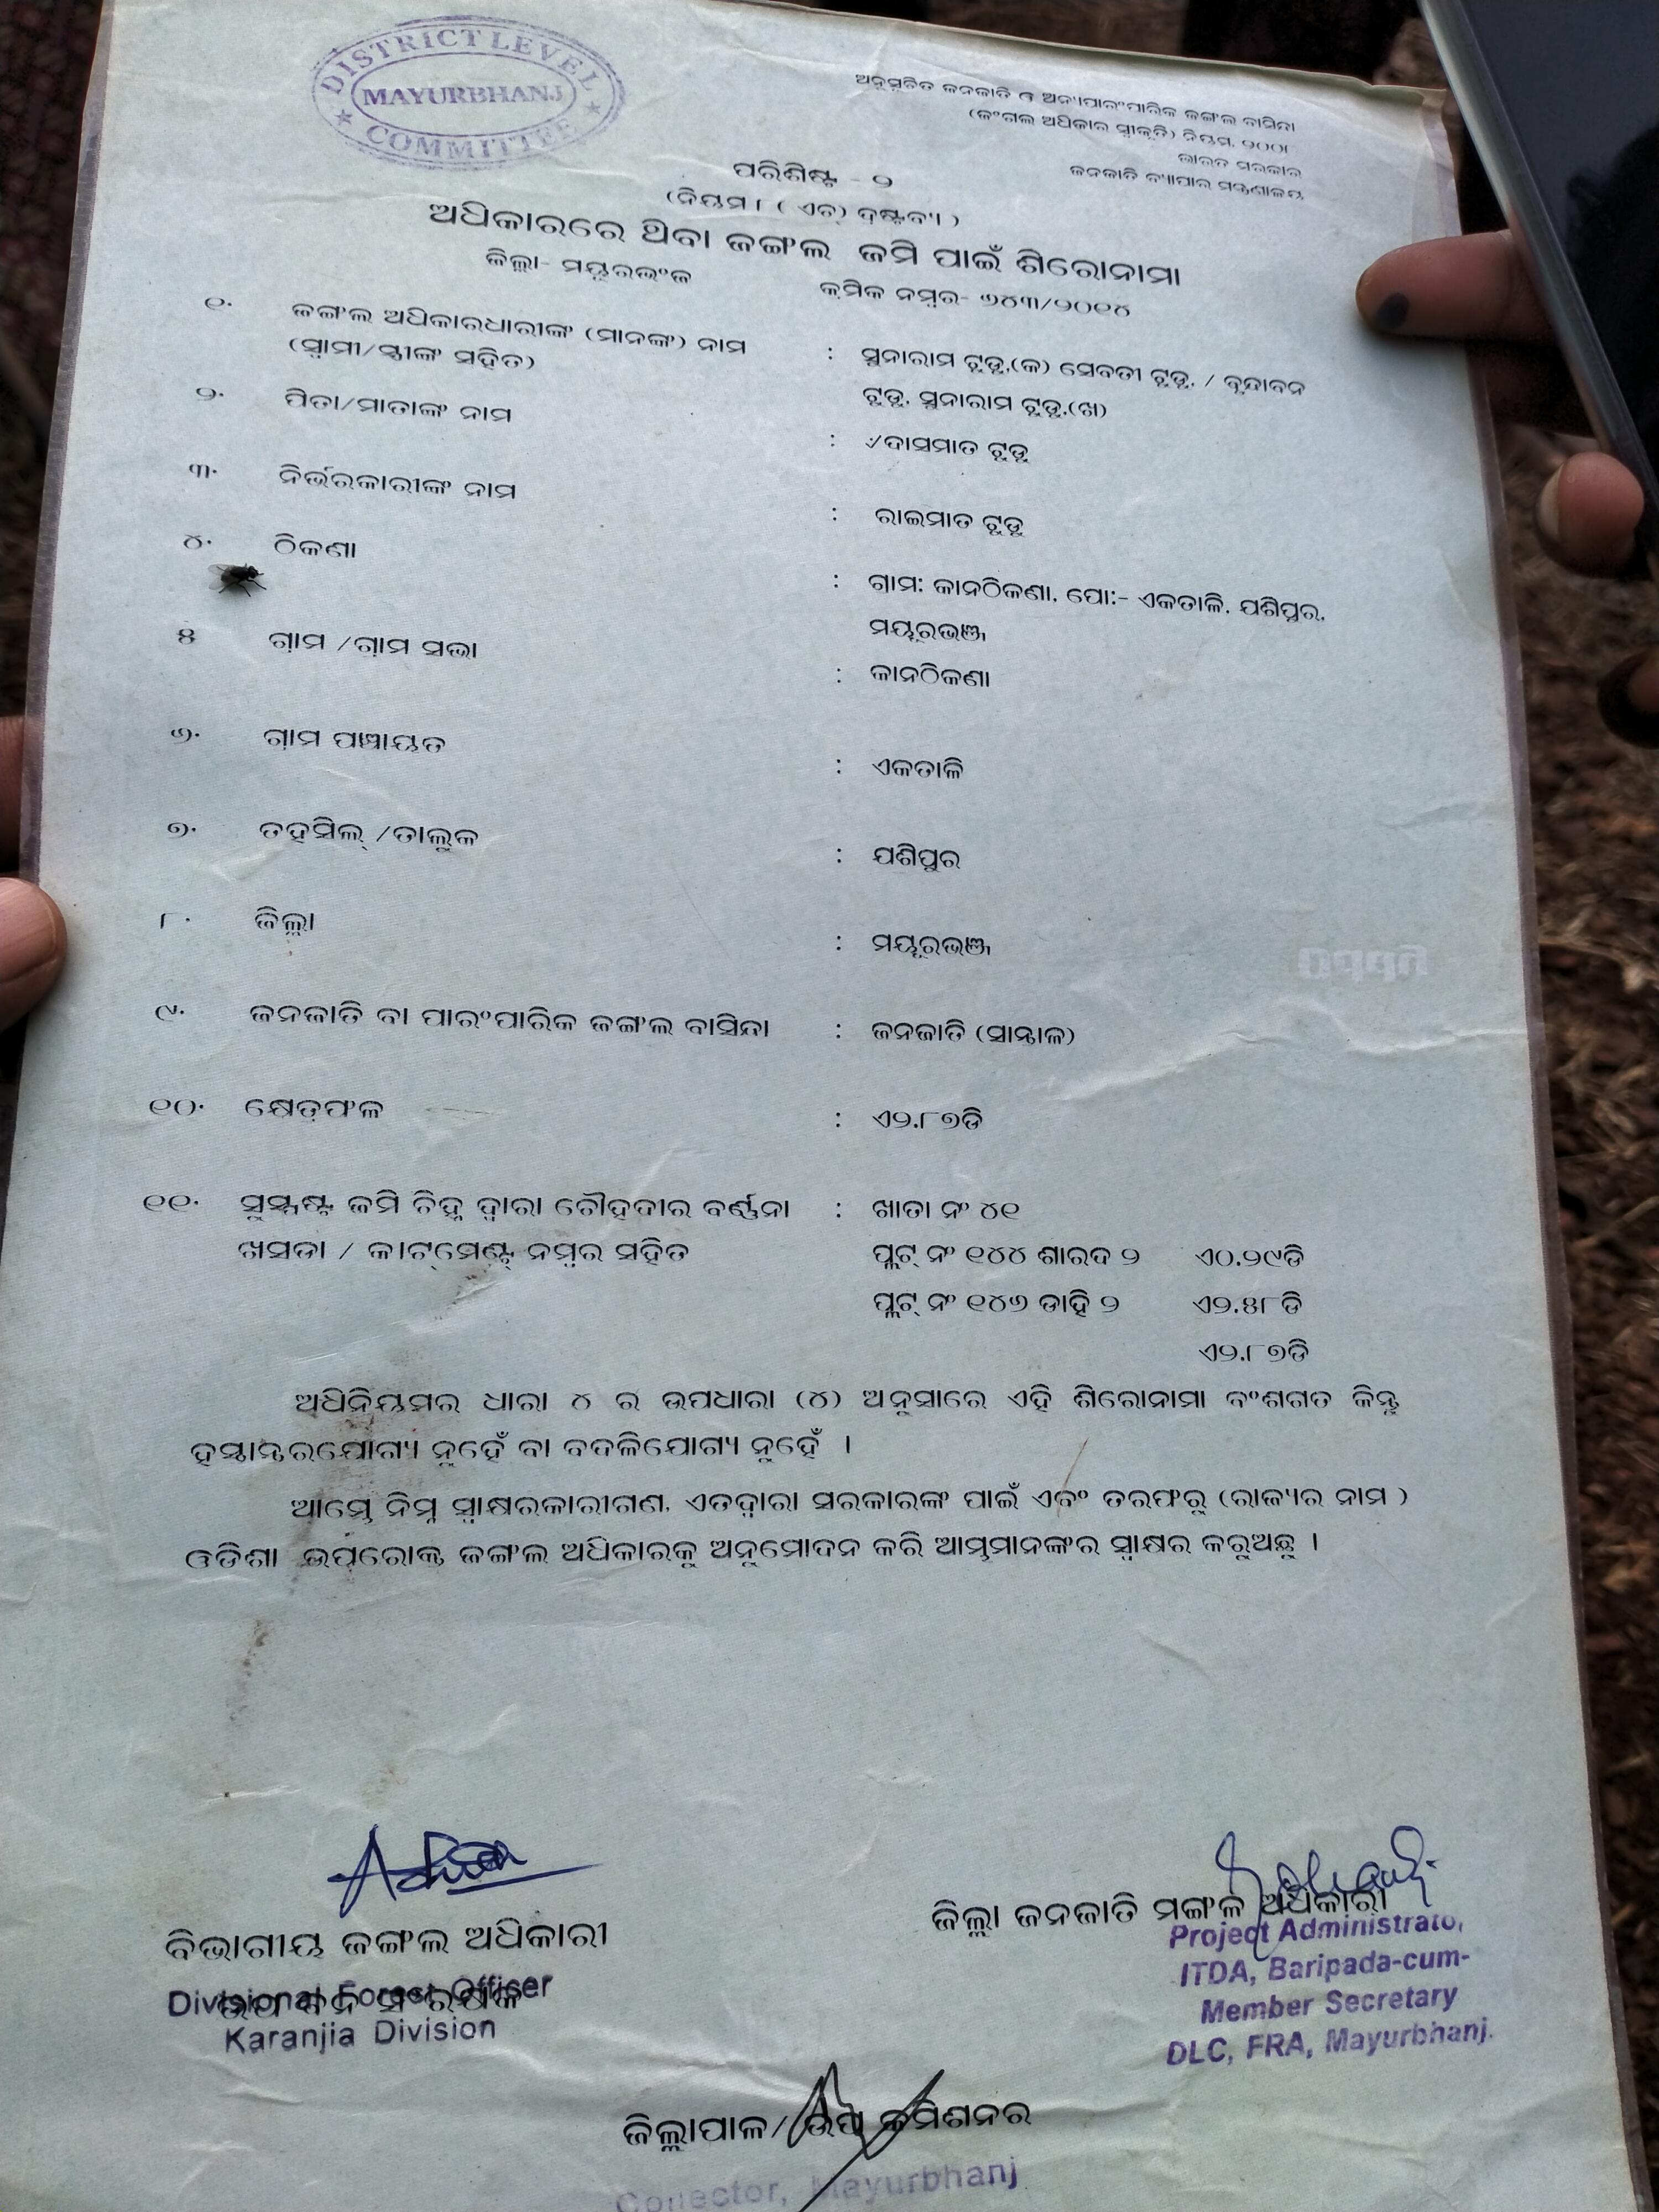 DISTRICT LEVEL
MAYURBHANJ
COMMITTEE
ଅନୁସୂଚିତ ଜନଜାତି ଓ ଅନ୍ୟାପାରଂପାରିକ ଜଙ୍ଗଲ ବାସିନ୍ଦା
(ଜଂଗଲ ଅଧିକାର ସ୍ୱୀକୃତି) ନିୟମ, ୨୦୦୮
ଭାରତ ସରକାର
ଜନଜାତି ବ୍ୟାପାର ମନ୍ତ୍ରଣାଳୟ
ପରିଶିଷ୍ଟ - ୨
(ନିୟମ ୮ ( ଏଚ୍) ଦ୍ରଷ୍ଟବ୍ୟ )
ଅଧିକାରରେ ଥିବା ଜଙ୍ଗଲ ଜମି ପାଇଁ ଶିରୋନାମା
ଜିଲ୍ଲା- ମୟୂରଭଂଜ
କ୍ରମିକ ନମ୍ବର- ୬୪୩/୨୦୧୪
୧. ଜଙ୍ଗଲ ଅଧିକାରଧାରୀଙ୍କ (ମାନଙ୍କ) ନାମ (ସ୍ୱାମୀ/ସ୍ତ୍ରୀଙ୍କ ସହିତ) : ସୁନାରାମ ଟୁଡୁ,(କ) ସେବତୀ ଟୁଡୁ, / ବୃନ୍ଦାବନ
ଟୁଡୁ, ସୁନାରାମ ଟୁଡୁ,(ଖ)
୨. ପିତା/ମାତାଙ୍କ ନାମ : ୰ଦାସମାତ ଟୁଡୁ
୩. ନିର୍ଭରକାରୀଙ୍କ ନାମ : ରାଇମାତ ଟୁଡୁ
୪. ଠିକଣା : ଗ୍ରାମ: କାନଠିକଣା, ପୋ:- ଏକତାଳି, ଯଶିପୁର,
ମୟୂରଭଞ୍ଜ
୫ ଗ୍ରାମ /ଗ୍ରାମ ସଭା : କାନଠିକଣା
୬. ଗ୍ରାମ ପଞ୍ଚାୟତ : ଏକତାଳି
୭. ତହସିଲ୍ /ତାଲୁକ : ଯଶିପୁର
୮. ଜିଲ୍ଲା : ମୟୂରଭଞ୍ଜ
୯. ଜନଜାତି ବା ପାରଂପାରିକ ଜଙ୍ଗଲ ବାସିନ୍ଦା : ଜନଜାତି (ସାନ୍ତାଳ)
୧୦. କ୍ଷେତ୍ରଫଳ : ଏ୨.୮୭ଡି
୧୧. ସୁସ୍ପଷ୍ଟ ଜମି ଚିହ୍ନ ଦ୍ୱାରା ଚୌହଦୀର ବର୍ଣ୍ଣନା : ଖାତା ନଂ ୪୧
ଖସଡା / କାଟ୍‌ମେଣ୍ଟ ନମ୍ବର ସହିତ ପ୍ଲଟ୍ ନଂ ୧୪୪ ଶାରଦ ୨ ଏ୦.୨୯ଡି
ପ୍ଲଟ୍ ନଂ ୧୪୬ ଡାହି ୨ ଏ୨.୫୮ଡି
ଏ୨.୮୭ଡି
ଅଧିନିୟମର ଧାରା ୪ ର ଉପଧାରା (୪) ଅନୁସାରେ ଏହି ଶିରୋନାମା ବଂଶଗତ କିନ୍ତୁ
ହସ୍ତାନ୍ତରଯୋଗ୍ୟ ନୁହେଁ ବା ବଦଳିଯୋଗ୍ୟ ନୁହେଁ ।
ଆମ୍ଭେ ନିମ୍ନ ସ୍ୱାକ୍ଷରକାରୀଗଣ, ଏତଦ୍ୱାରା ସରକାରଙ୍କ ପାଇଁ ଏବଂ ତରଫରୁ (ରାଜ୍ୟର ନାମ )
ଓଡିଶା ଉପରୋକ୍ତ ଜଙ୍ଗଲ ଅଧିକାରକୁ ଅନୁମୋଦନ କରି ଆମ୍ଭମାନଙ୍କର ସ୍ୱାକ୍ଷର କରୁଅଛୁ ।
ବିଭାଗୀୟ ଜଙ୍ଗଲ ଅଧିକାରୀ
Divisional Forest Officer
Karanjia Division
ଜିଲ୍ଲା ଜନଜାତି ମଙ୍ଗଳ ଅଧିକାରୀ
Project Administrator,
ITDA, Baripada-cum-
Member Secretary
DLC, FRA, Mayurbhanj.
ଜିଲ୍ଲାପାଳ/ ଉପ କମିଶନର
Collector, Mayurbhanj